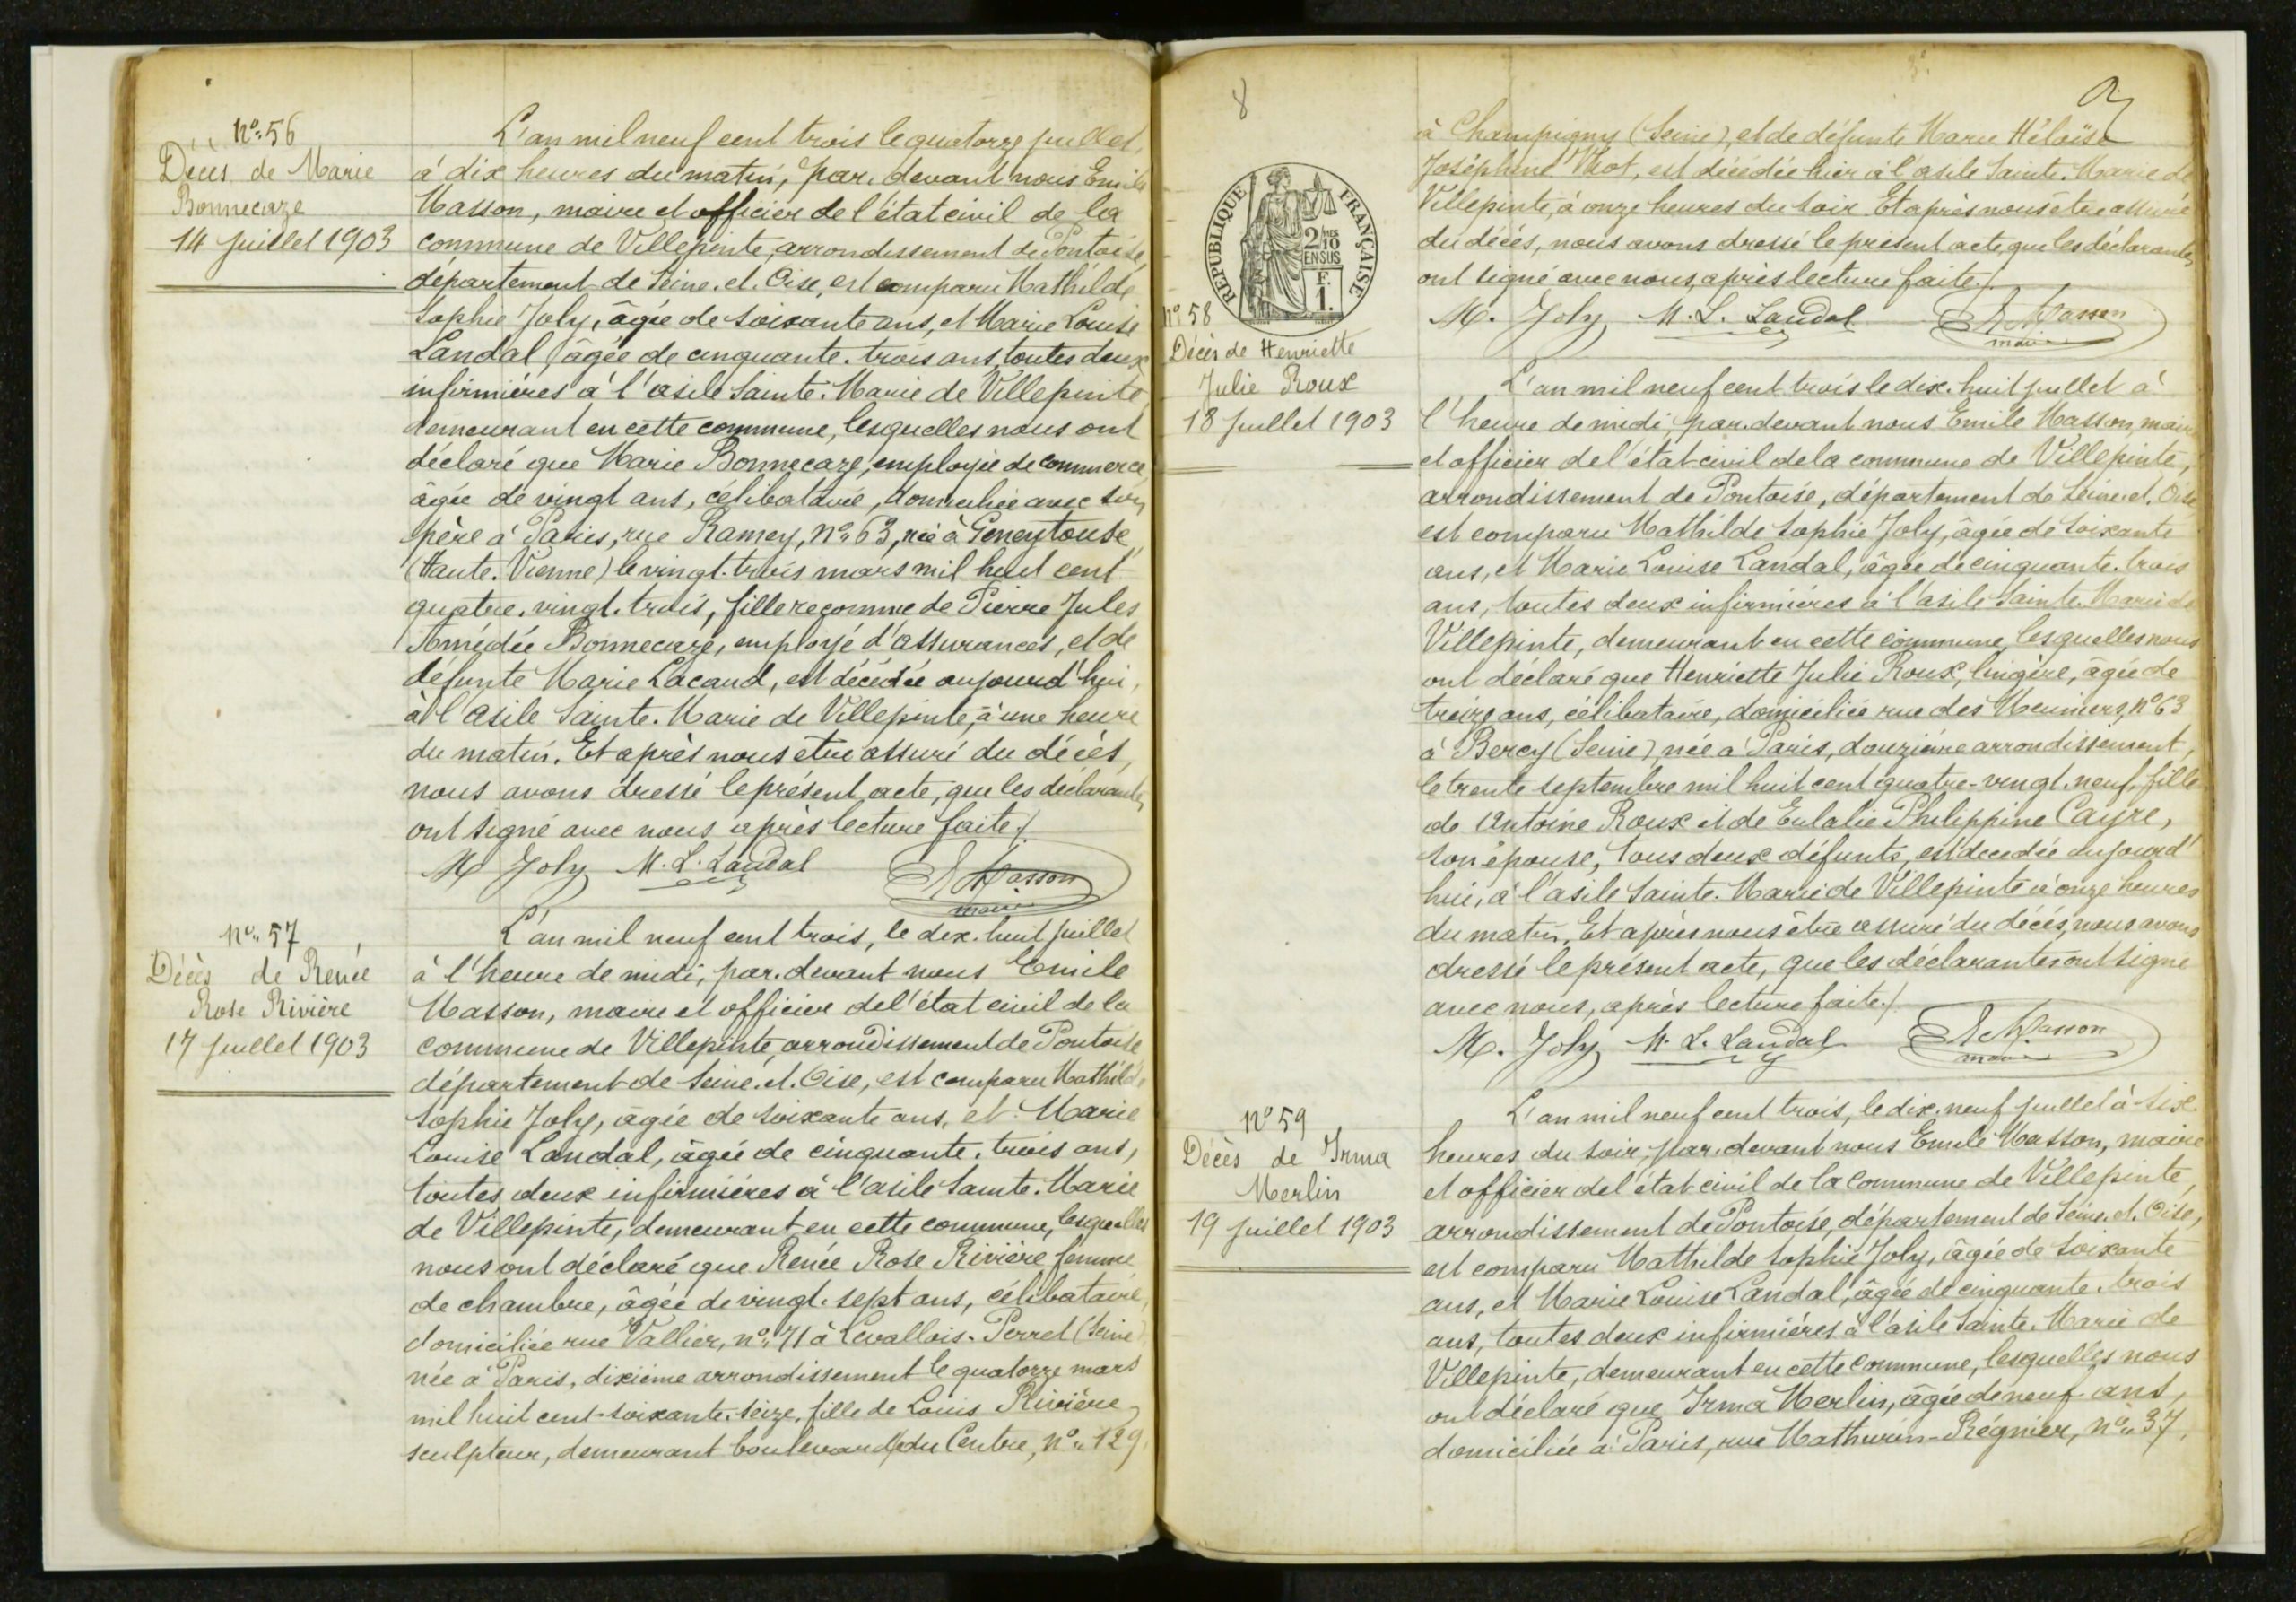 Nº 56
Décès de Marie
Bonnecaze
14 Juillet 1903
L'an mil neuf cent trois le quatorze juillet,
à dix heures du matin, par. devant nous Emile
Masson, maire et officier de l'état civil de la
commune de Villepinte, arrondissement de Pontoise,
département de Seine. et. Oise, est comparu Mathilde
Sophie Joly, âgée de soixante ans, et Marie Louise
Landal, âgée de cinquante. trois ans, toutes deux
infirmières à l'asile Sainte. Marie de Villepinte,
demeurant en cette commune, lesquelles nous ont
déclaré que Marie Bonnecaze, employée de commerce,
âgée de vingt ans, célibataire, domiciliée avec son
père à Paris, rue Ramey, nº 63, née à Geneytouse,
(Haute. Vienne) le vingt. trois mars mil huit cent
quatre. vingt. trois, fille reconnue de Pierre Jules
Amédée Bonnecaze, employé d'assurances, et de
défunte Marie Lacaud, est décédée aujourd'hui,
à l'asile Sainte. Marie de Villepinte, à une heure
du matin. Et après nous être assuré du décès,
nous avons dressé le présent acte, que les déclarantes
ont signé avec nous après lecture faite./.
M Joly M. L. Landal E Masson
maire
Nº 57
Décès de Renée
Rose Rivière
17 Juillet 1903
L'an mil neuf cent trois, le dix. huit juillet
à l'heure de midi, par. devant nous Emile
Masson, maire et officier de l'état civil de la
commune de Villepinte, arrondissement de Pontoise
département de Seine. et. Oise, est comparu Mathilde
Sophie Joly, âgée de soixante ans, et Marie
Louise Landal, âgée de cinquante. trois ans,
toutes deux infirmières à l'asile Sainte. Marie
de Villepinte, demeurant en cette commune, lesquelles
nous ont déclaré que Renée Rose Rivière femme
de chambre, âgée de vingt. sept ans, célibataire,
domiciliée rue Vallier, nº 71 à Levallois. Perret (Seine)
née à Paris, dixième arrondissement le quatorze mars
mil huit cent soixante. seize, fille de Louis Rivière,
sculpteur, demeurant boulevard du Centre, nº 129,
8
à Champigny (Seine), et de défunte Marie Héloïse
Joséphine Thot, est décédée hier à l'asile Sainte. Marie de
Villepinte, à onze heures du soir. Et après nous être assuré
du décès, nous avons dressé le présent acte, que les déclarantes
ont signé avec nous, après lecture faite./.
M. Joly M. L. Landal E Masson
maire
RÉPUBLIQUE FRANÇAISE
2/10
EN SUS
F.
1
Nº 58
Décès de Henriette
Julie Roux
18 Juillet 1903
L'an mil neuf cent trois le dix. huit juillet à
l'heure de midi, par. devant nous Emile Masson, maire
et officier de l'état civil de la commune de Villepinte,
arrondissement de Pontoise, département de Seine. et. Oise
est comparu Mathilde Sophie Joly, âgée de soixante
ans, et Marie Louise Landal, âgée de cinquante. trois
ans, toutes deux infirmières à l'asile Sainte. Marie de
Villepinte, demeurant en cette commune, lesquelles nous
ont déclaré que Henriette Julie Roux, lingère, âgée de
treize ans, célibataire, domiciliée rue des Meuniers, nº 63
à Bercy (Seine), née à Paris, douzième arrondissement,
le trente septembre mil huit cent quatre-vingt. neuf, fille
de Antoine Roux et de Eulalie Philippine Cayre,
son épouse, tous deux défunts, est décédée aujourd'
hui, à l'asile Sainte. Marie de Villepinte à onze heures
du matin. Et après nous être assuré du décès, nous avons
dressé le présent acte, que les déclarantes ont signé
avec nous, après lecture faite./.
M. Joly M. L. Landal E Masson
maire
Nº 59
Décès de Irma
Merlin
19 Juillet 1903
L'an mil neuf cent trois, le dix. neuf juillet à six
heures du soir, par. devant nous Emile Masson, maire
et officier de l'état civil de la commune de Villepinte,
arrondissement de Pontoise, département de Seine. et. Oise,
est comparu Mathilde Sophie Joly, âgée de soixante
ans, et Marie Louise Landal, âgée de cinquante. trois
ans, toutes deux infirmières à l'asile Sainte. Marie de
Villepinte, demeurant en cette commune, lesquelles nous
ont déclaré que Irma Merlin, âgée de neuf ans,
domiciliée à Paris, rue Mathurin-Régnier, nº 37,